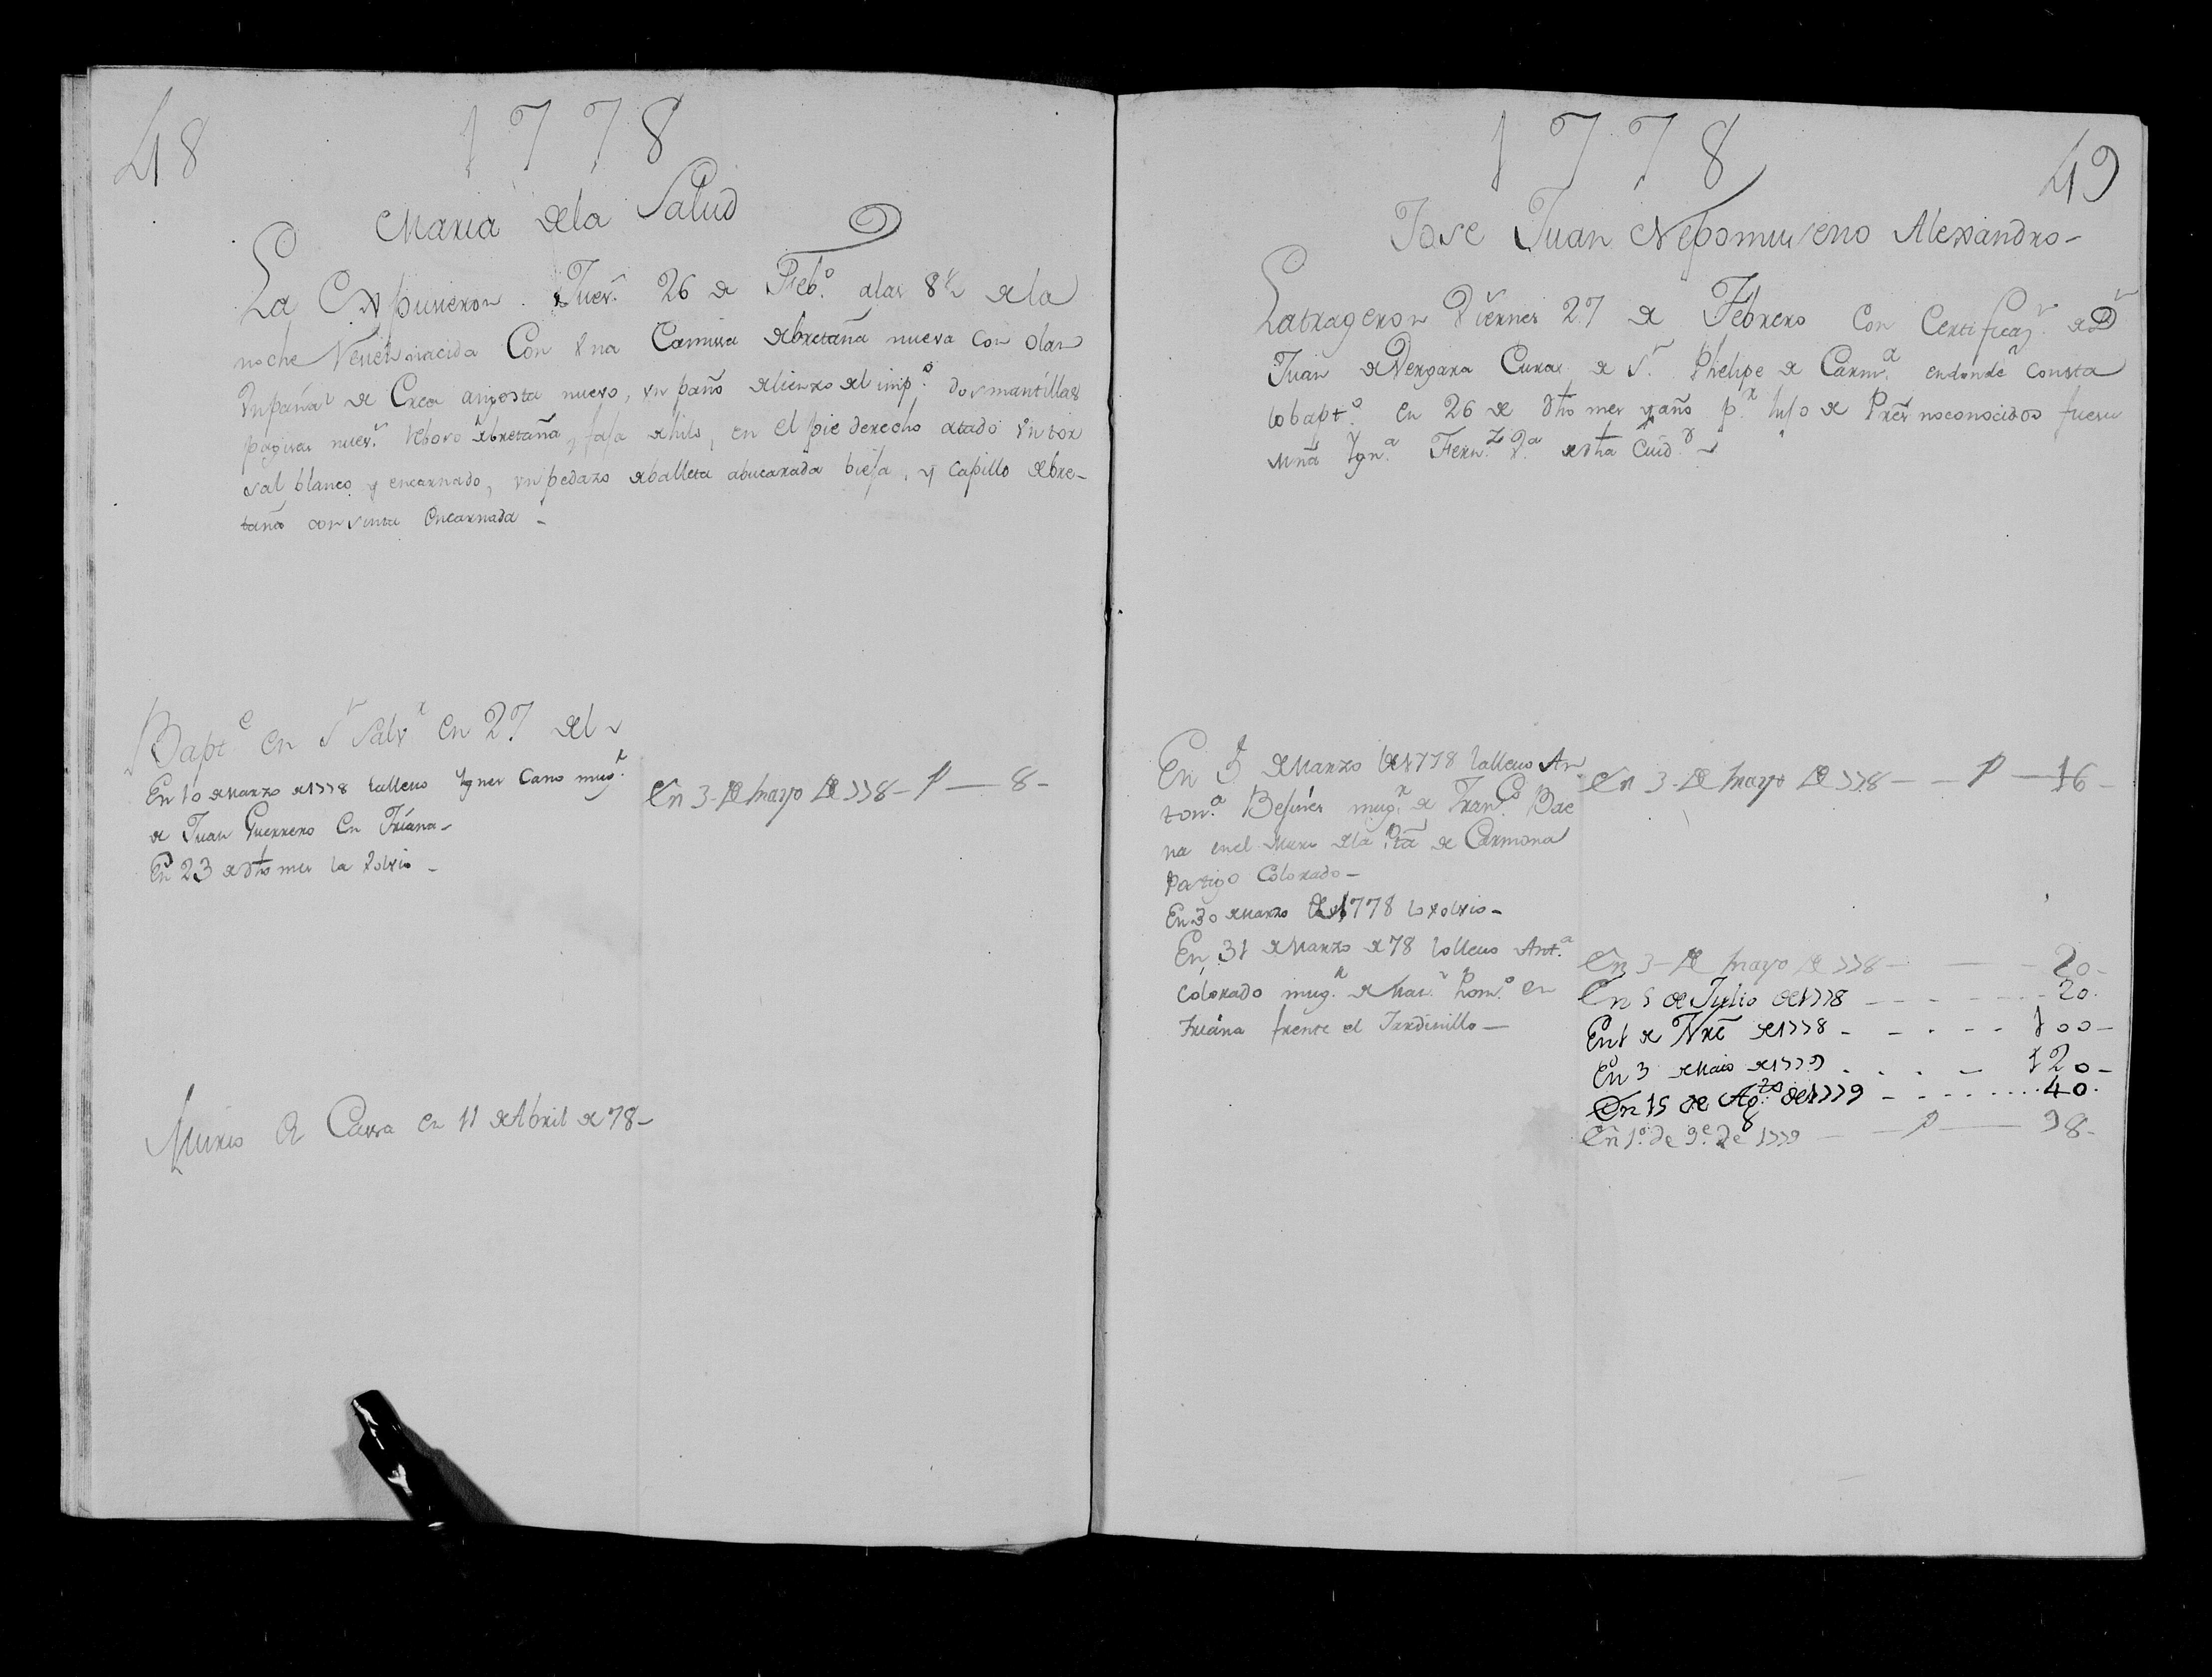 48
1778
Maria dela Salud
La Expusieron Juev.s 26 de Feb.o alas 8 1/2 dela
noche Recien nacida Con Una Camisa de bretaña nueva con olan
Un pañal de Crea angosta nuevo, un paño de lienzo del imp.o dos mantillas
nuev.s Reboso de bretaña, faja de hilo, en el pie derecho atado Un tor
sal blanco y encarnado, un pedazo de balleta abucarada bieja, y Capillo de bre-
taña con sinta Encarnada -
Bapt.e en S.n Salv.r en 27 del
En 10 de Marzo de 1778 la llevo Ygnes Cano mug.r
de Juan Guerrero En Triana -
En 23 de dho mes la Volvio -
En 3 de mayo de 778 - P - 8 -
Murio en Cassa en 11 de Abril de 78 -
1778
49
Jose Juan Nepomuseno Alexandro -
La trageron Viernes 27 de Febrero Con Certificaz.n de D.n
Juan de Vergara Cura de S.n Phelipe de Carm.a en donde Consta
lo bapt.o en 26 de dho mes y año p.r hijo de Pres no conocidos fue su
Mña Ygn.a Fern.z V.a de dha Ciud.d -
En 5 de Marzo de 1778 la llevo An
ton.a Befines mug.r de Fran.co Bae
na en el Muro de la Pta de Carmona
Postigo Colorado -
En 30 de Marzo de 1778 lo volvio -
En 31 de Marzo de 78 lo llevo Ant.a
Colorado mug.r de Rom.o en
Triana frente el Jardinillo -
En 3 de mayo de 778 - - P - 16 -
En 3 de mayo de 778 - - 20 -
En 5 de Julio de 1778 - - - - 20.
En 1 de Nre de 1778 - - - - - 100 -
En 3 de Maio de 1779 . . . - 120 -
En 15 de Ag.to de 1779 - - . . . . . 40.
En 1.o de 9.e de 1779 - P - 98 -